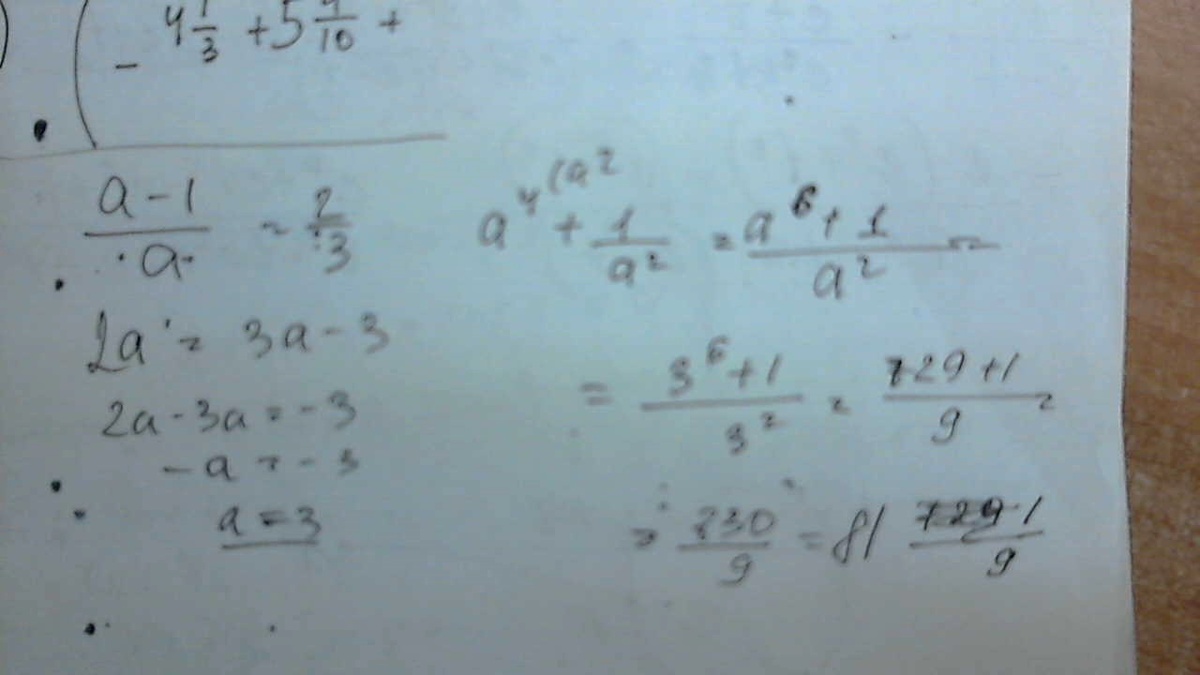 - 4 1/3 + 5 /10 +
(a-1)/a = 2/3
2a = 3a - 3
2a - 3a = -3
-a = -3
a = 3
a^4 (a^2 + 1/a^2 = (a^6 + 1)/a^2 =
= (3^6 + 1)/3^2 = (729 + 1)/9 =
= 730/9 = 81 1/9